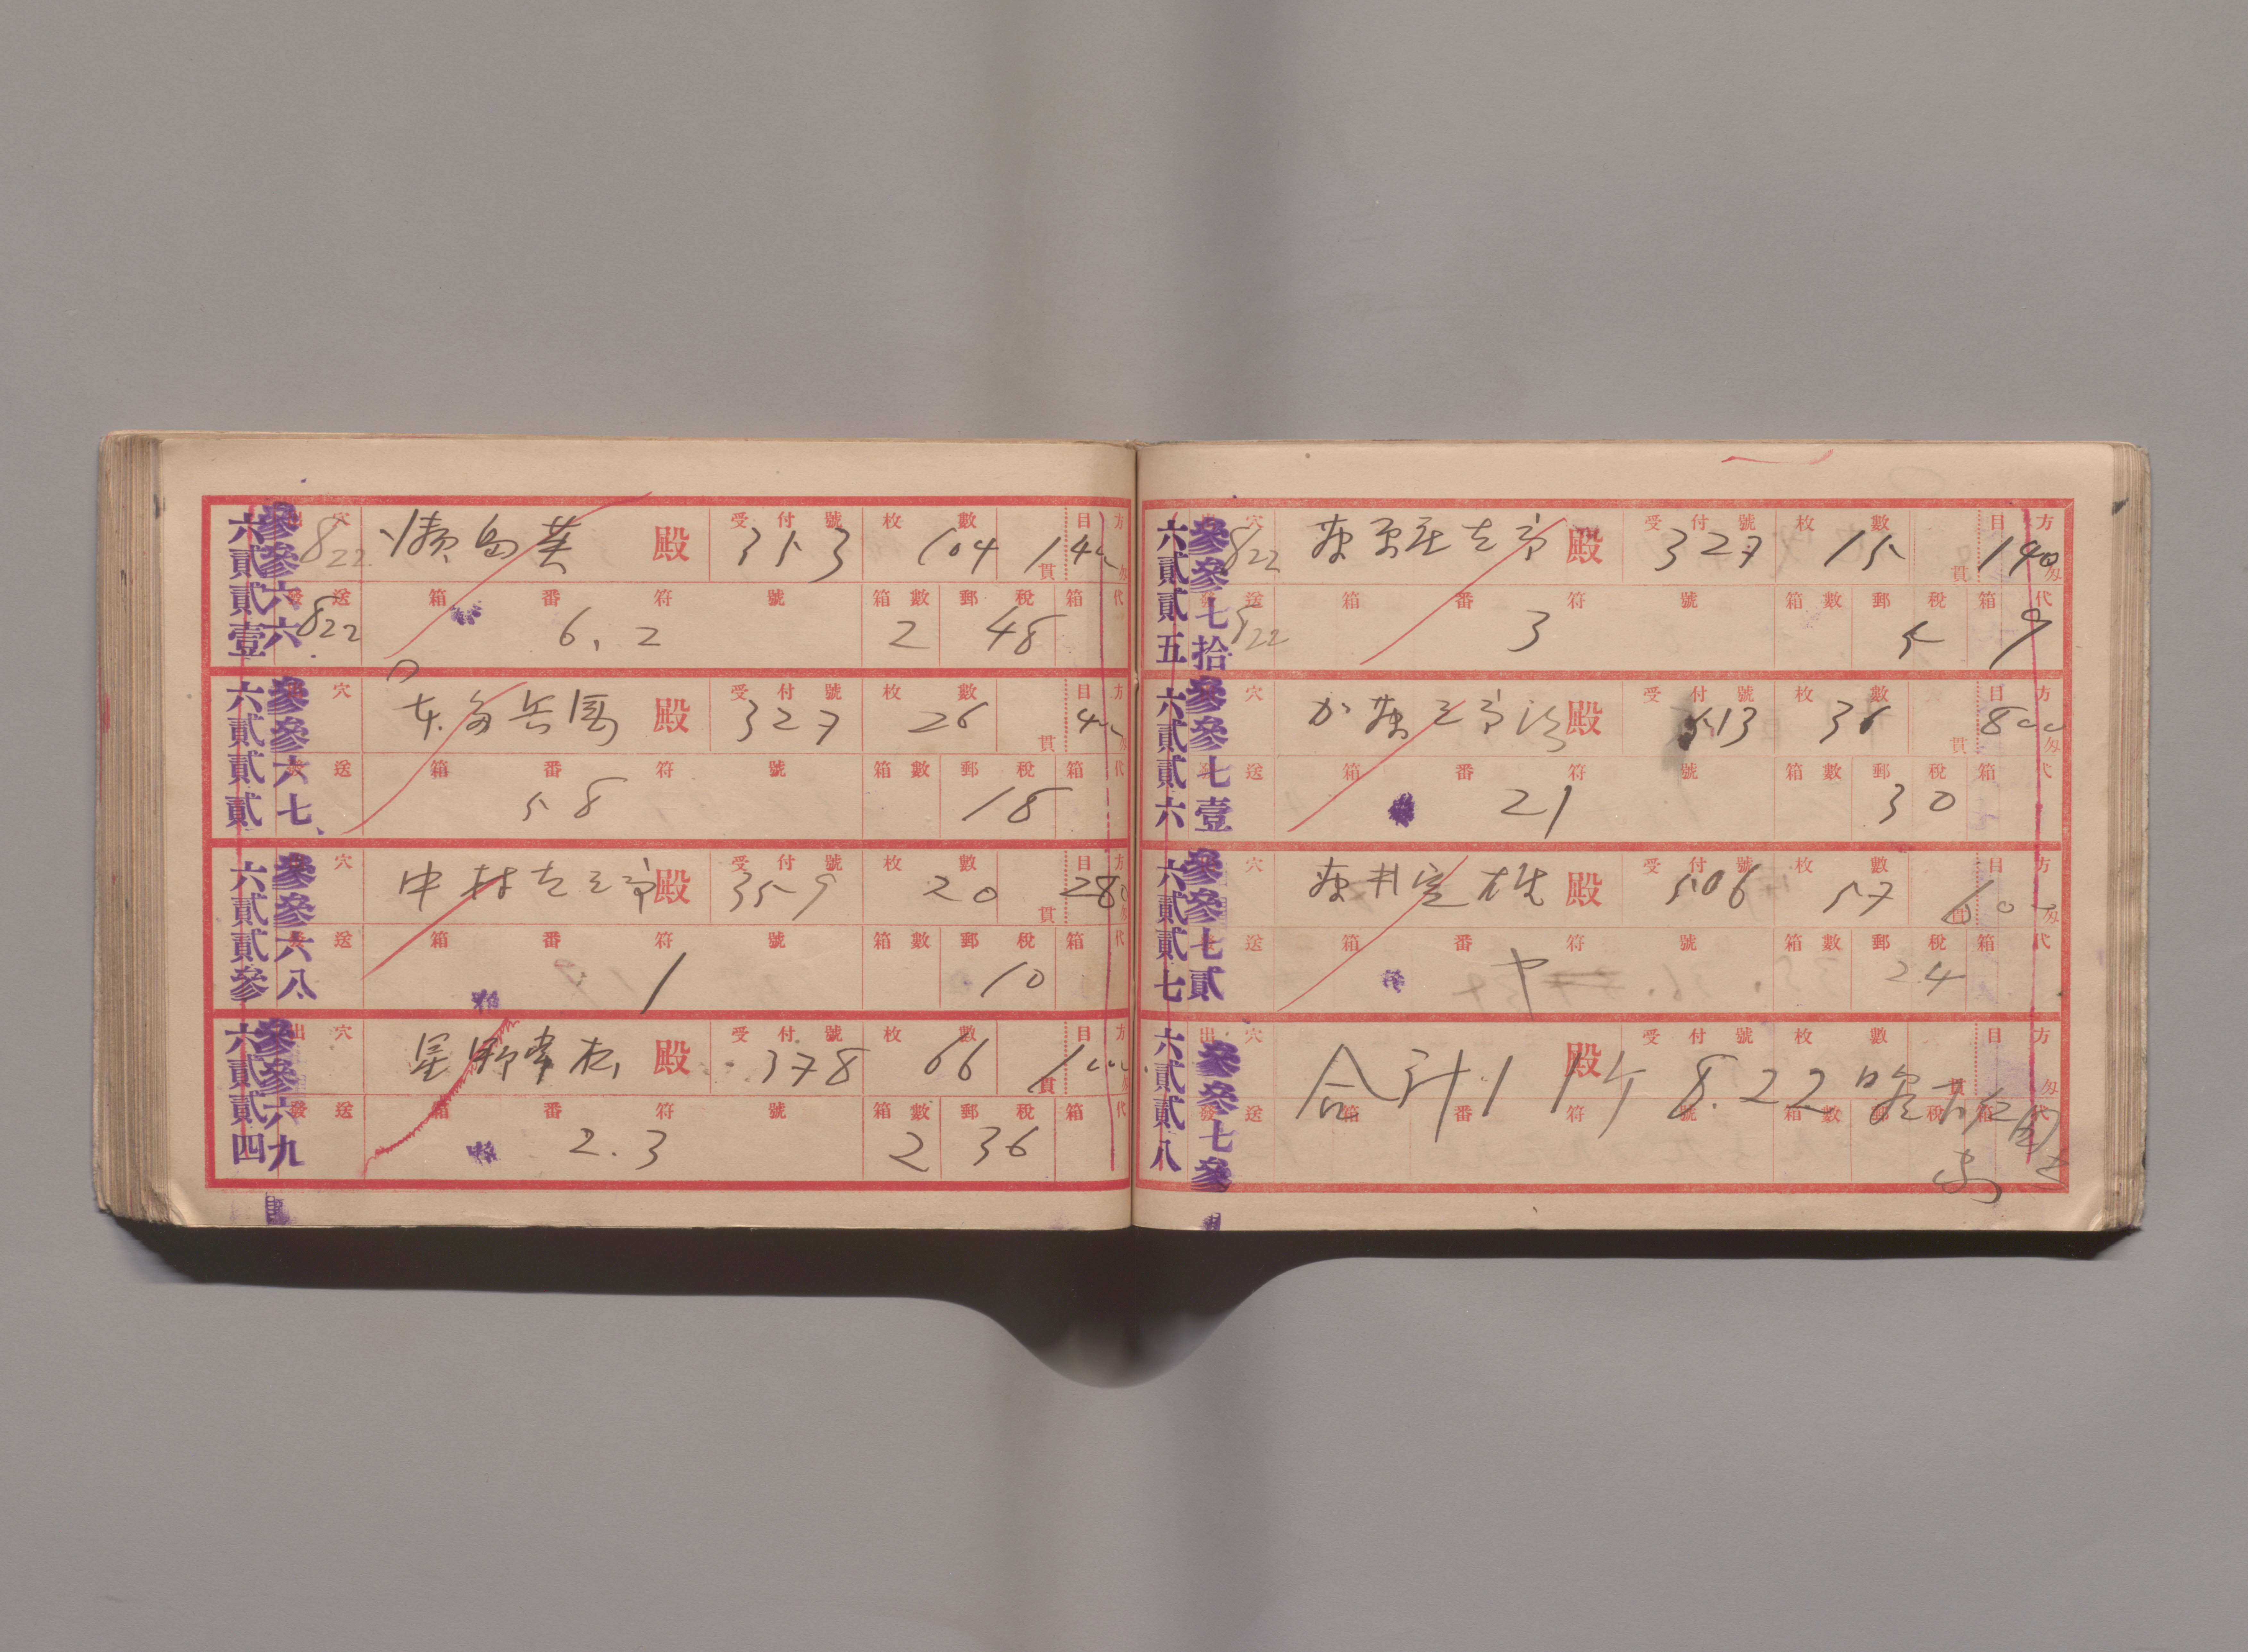 六貳貳壹 參參六六 出穴 8/22 横島英 殿 受付號 353 枚數 104 1貫 目方 400匁
發送 8/22 箱番符號 6.2 箱數 2 郵稅 48 箱代
六貳貳貳 參參六七 穴 兵馬 殿 受付號 327 枚數 26 貫 目方 400匁
發送 箱番符號 58 箱數 郵稅 18 箱代
六貳貳參 參參六八 穴 中村左三郎 殿 受付號 359 枚數 20 貫 目方 280匁
發送 箱番符號 1 箱數 郵稅 10 箱代
六貳貳四 參參六九 出穴 星野 殿 受付號 378 枚數 66 1貫 目方 匁
發送 箱番符號 2.3 箱數 2 郵稅 36 箱代
六貳貳五 參參七拾 出穴 8/22 左市 殿 受付號 327 枚數 15 貫 目方 140匁
發送 8/22 箱番符號 3 箱數 郵稅 5 箱代 9
六貳貳六 參參七壹 穴 加藤三市治 殿 受付號 513 枚數 36 貫 目方 800匁
發送 箱番符號 21 箱數 郵稅 30 箱代
六貳貳七 參參七貳 穴 藤井定雄 殿 受付號 506 枚數 57 貫 目方 600匁
發送 箱番符號 ヤ 箱數 郵稅 24 箱代
六貳貳八 參參七參 出穴 合計 11件 8.22 殿 受付號 枚數 貫 目方 匁
發送 箱番符號 箱數 郵稅 箱代